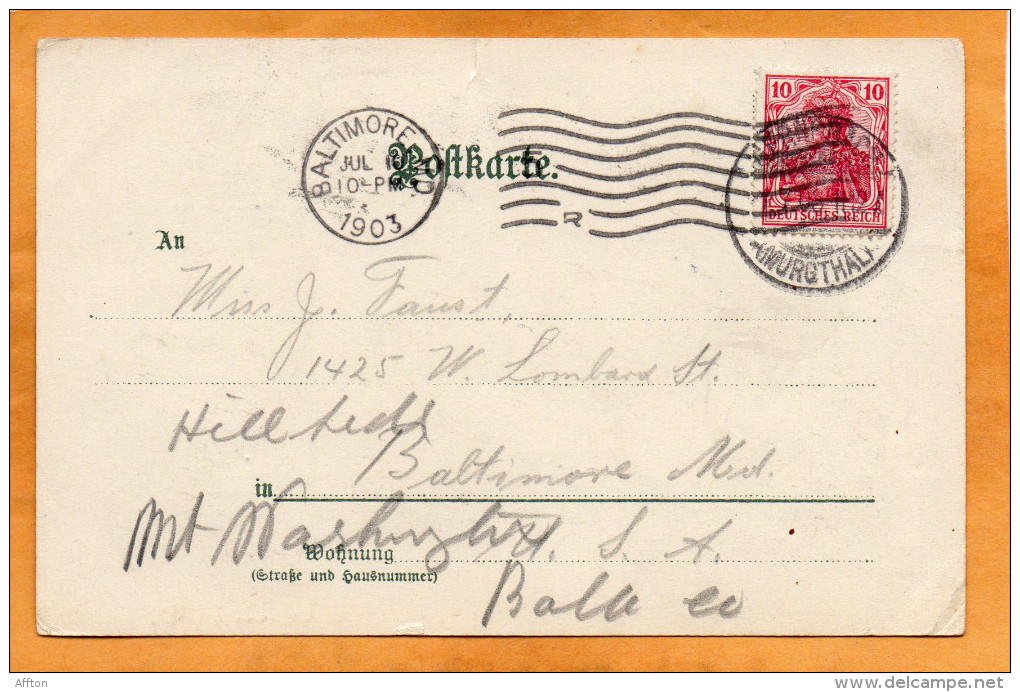 10 10
DEUTSCHES REICH
(MURGTHAL)
BALTIMORE, MD.
JUL 10
10 - PM
1903
R
Postkarte.
An
Miss J. Faust,
1425 W. Lombard St.
Baltimore Md.
in
Mt Washington
U. S. A.
Wohnung
(Straße und Hausnummer)
Balto co
Affton
www.delcampe.net